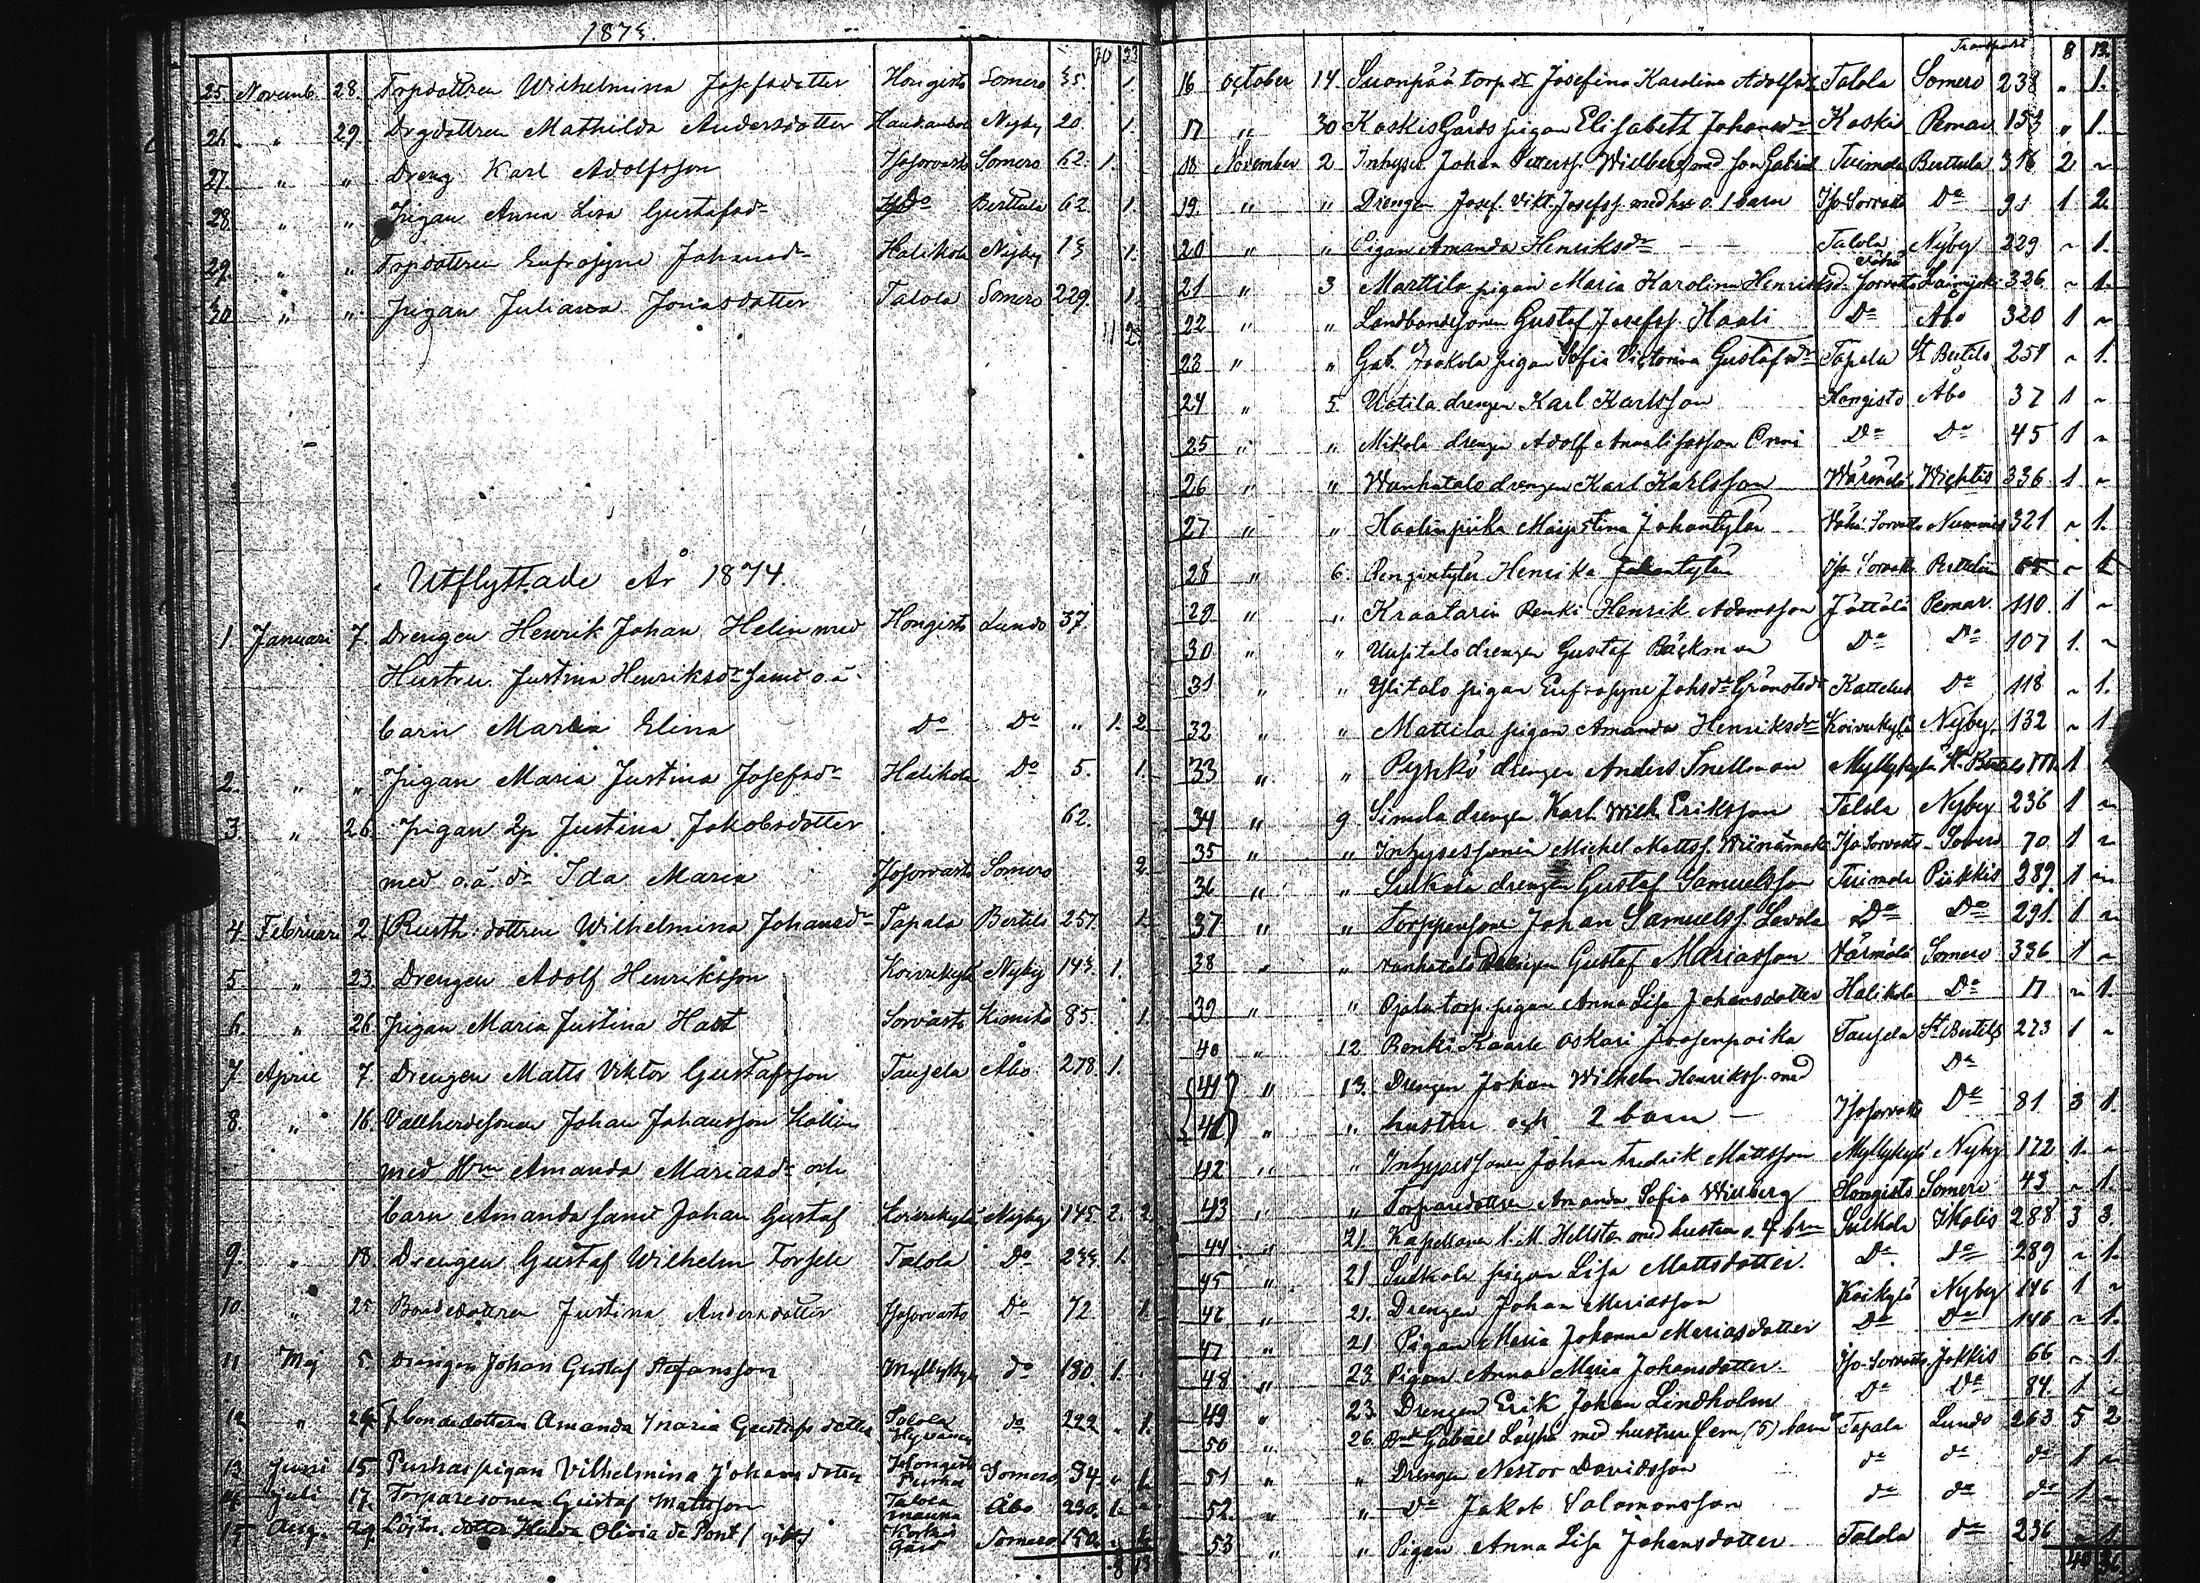 1873.
10 23
25. Novemb. 28. Trpdottren Wilhelmina Josefsdotter Hongisto Somero 35. 1.
26. " 29. Drgdottren Mathilda Andersdotter Nyby 20. 1.
27. " " Dreng Karl Adolfsson Isosorvasto Somero 62. 1.
28. " " Pigan Anna Lisa Gustafsdr Do Berttula 62. 1.
29. " " Trpdottren Eufrosyne Johansdr Halikola Nyby 13 1.
30. " " Pigan Juliana Jonasdotter Talola Somero 229. 1.
11 2
Utflyttade År 1874.
1. Januari 7. Drengen Henrik Johan Helin med Hongisto Lundo 37.
Hustru Justina Henriksdr samt o.ä.
barn Maria Elina Do Do " 1. 2.
2. " " Pigan Maria Justina Josefsdr Halikola Do 5. 1.
3. " 26. Pigan Justina Jakobsdotter 62.
med o.ä. dr Ida Maria Isosorvasto Somero 2.
4. Februari 2. Rusth. dottren Wilhelmina Johansdr Tapala Bertils 257. 1.
5. " 23. Drengen Adolf Henriksson Koivukylä Nyby 143. 1.
6. " 26. Pigan Maria Justina Hast Sorvasto Kimito 85. 1.
7. April 7. Drengen Matts Viktor Gustafsson Taujela Åbo 278. 1.
8. " 16. Vallherdesonen Johan Johansson Kallin
med Hru Amanda Mariasdr och
barn Amanda samt Johan Gustaf Koivukylä Nyby 145. 2. 2.
9. " 18. Drengen Gustaf Wilhelm Forsell Talola Do 233. 1.
10. " 25 Bondedottren Justina Andersdotter Isosorvasto Do 72. 1.
11 Maj 5. Drengen Johan Gustaf Stefansson Myllykylä do 180. 1.
12. " 24. Bondedottern Amanda Maria Gustafsdotter Talola do 222. " 1.
13. Juni 15. Purhas pigan Vilhelmina Johansdotter Hongisto Purha Somero 34. " 1.
14. Juli 17. Torparesonen Gustaf Mattsson Talola Åbo 230. 1. "
15. Aug. 29. Löjtn. dotter Hulda Olivia de Pont (gift) Koskis gård Somero 150. " 1.
8 13
Transport 8 13.
16 October 14. Suonpää torp dr Josefina Karolina Adolfsdr Talola Somero 238 " 1.
17 " 30 Koskis Gårds pigan Elisabeth Johansdr Koskis Pemar 153 " 1.
18 November 2 Inhyses Johan Pettersf. Widberg med son Gabriel Tuimala Berttula 316 2 "
19. " " Drengen Josef. Vikt. Josefsf. med hu o. 1 barn Iso-Sorvasto Do 91 1 2.
20 " " Pigan Amanda Henriksdr Talola Nyby 229 " 1.
21 " 3 Marttila pigan Maria Karolina Henriksd. Vähä Sorvasto 326 " 1.
22 " " Landbondesonen Gustaf Josefsf. Haali Do Åbo 320 1 "
23 " " Gab. Jaakola pigan Sofia Victorina Gustafsdr Tapala St Bertils 257 " 1.
24 " 5. Uotila drengen Karl Karlsson Hongisto Åbo 37 1 "
25 " " Mikola drengen Adolf Annalisasson Onni Do Do 45 1 "
26 " " Wanhatalo drengen Karl Karlsson Wärmälä Wichtis 336 1 "
27 " " Haalin piika Maijastina Johantytär Vähä Sorvasto Nummis 321 " 1.
28 " 6. Rengintytär Henrika Juhantytär Iso Sorvasto 65 " 1
29 " " Kraatarin Renki Henrik Adamsson Jättälä Pemar. 110. 1 "
30 " " Uusitalo drengen Gustaf Bäckman Do Do 107 1. "
31 " " Ylitalo pigan Eufrosyne Johsdr Grönstedt Kattelus Do 118 " 1.
32 " " Mattila pigan Amanda Henriksdr Koivukylä Nyby. 132 " 1
33 " " Pynkö drengen Anders Snellman Myllykylä St. Bertils 171 1
34 " 9 Simola drengen Karl Wilh. Eriksson Talola Nyby 236 1 "
35 " " Inhysessonen Michel Mattsf. Wiinamäki Iso Sorvasto Somero 70 1 "
36 " " Suikola drengen Gustaf Samuelsson Tuimala Piikkis 289. 1 "
37 " " Torpparesone Johan Samuelsf. Levola Do Do 291. 1 "
38 " " Vanhatalo Drengen Gustaf Mariasson Värmälä Somero 336 1 "
39 " " Ojala torp. pigan Anna Lisa Johansdotter Halikola Do 17 " 1.
40 " 12 Renki Kaarle Oskari Joosenpoika Taujela St. Bertils 273 1 "
41 " 13. Drengen Johan Wilhelm Henriksf. med Do
41 " " hustru och 2 barn Isosorvasto Do 81 3 1.
42 " " Inhysessonen Johan Fredrik Mattsson Myllykylä Nyby 172 1. "
43 " " Torparedottren Amanda Sofia Widberg Hongisto Somero 43 " 1.
44 " 21. Kapellanen K. M. Hellsten med hustru o. 4 brn Suikola Ikalis 288 3 3.
45 " 21 Suikola pigan Lisa Mattsdotter. Do Do 289 " 1.
46 " 21. Drengen Johan Mariasson Koikylä Nyby 146 1 "
47 " 21 Pigan Maria Johanna Mariasdotter Do Do 146 " 1.
48 " 23. Pigan Anna Maria Johansdotter. Iso-Sorvasto Jokkis 66 " 1.
49 " 23. Drengen Erik Johan Lindholm Do Do 84. 1 "
50 " 26. Gabriel Löyhä med hustru fem (5) barn Tapala Lundo 263 5 2
51 " " Drengen Nestor Davidsson do do do 1 "
52. " " Do Jakob Salomonsson do do do 1 "
53 " " Pigan Anna Lisa Johansdotter Talola do 236 " 1.